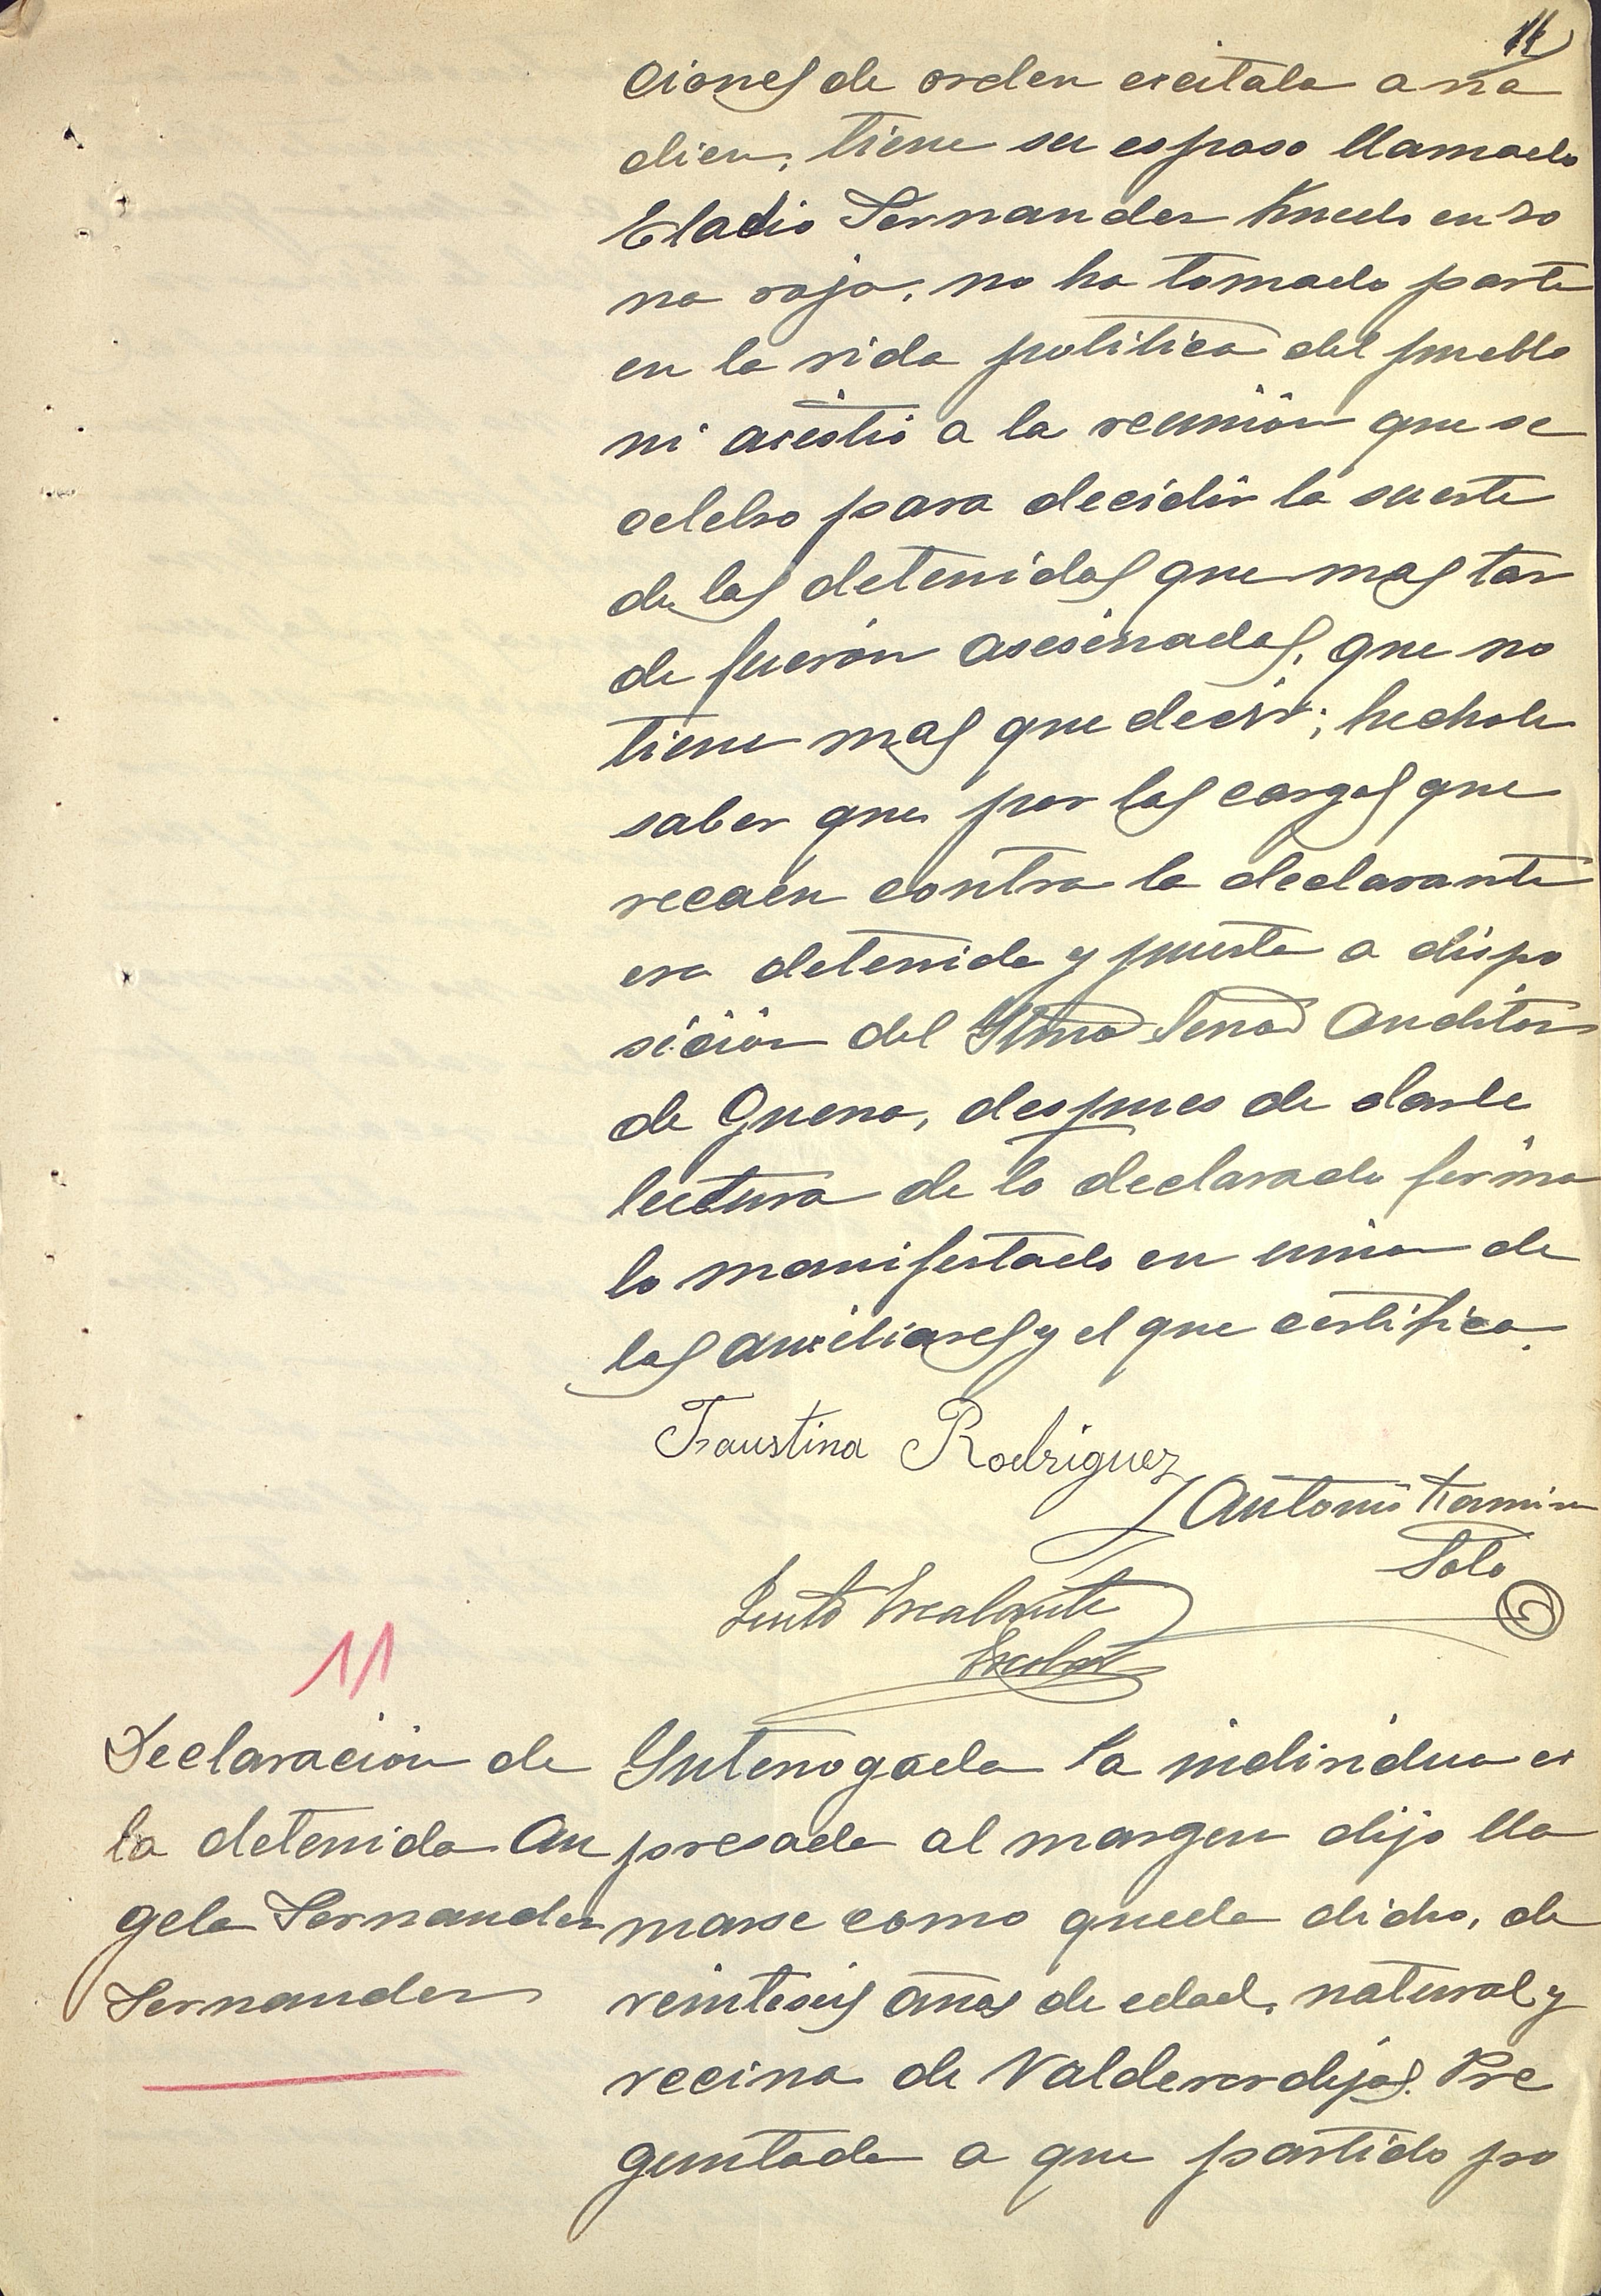 11
ciones de orden excitala a na
dien, tiene su esposo llamado
Eladio Fernandez huido en zo
na roja, no ha tomado parte
en la vida politica del pueblo
ni asistio a la reunión que se
celebro para decidir la suerte
de los detenidos que mas tar
de fuerón asesinados, que no
tiene mas que decir; hechole
saber que por los cargos que
recaen contra la declarante
era detenida y puesta a dispo
sición del Iltmo Señor Auditor
de Guerra, despues de darle
lectura de lo declarado firma
lo manifestado en union de
los auxiliares y el que certifica.
Faustina Rodriguez
Antonio Ramiro
Polo
Justo Escalante
Escobar
11
Declaración de
la detenida An
gela Fernandez
Fernandez
Interrogada la individua ex
presada al margen dijo lla
marse como queda dicho, de
veintiseis años de edad, natural y
vecina de Valdeverdejas. Pre
guntada a que partido po